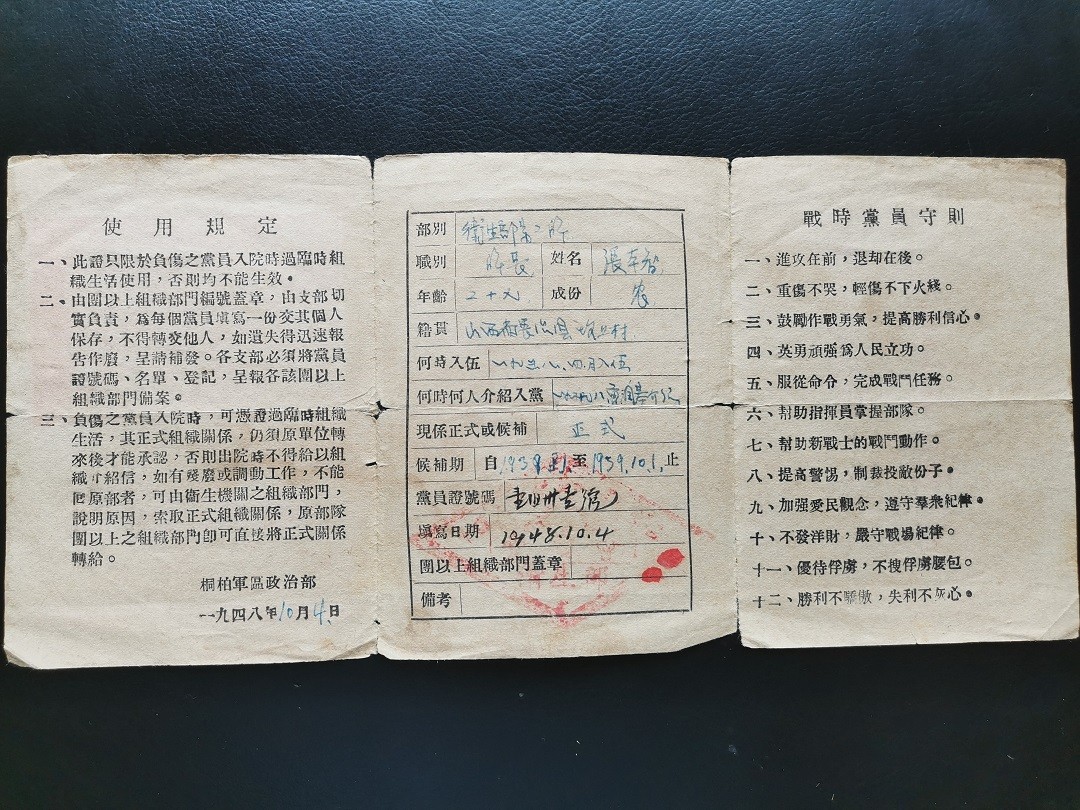 使用規定
一、此證只限於負傷之黨員入院時過臨時組
織生活使用，否則均不能生效。
二、由團以上組織部門編號蓋章，由支部切
實負責，為每個黨員填寫一份交其個人
保存，不得轉交他人，如遺失得迅速報
告作廢，呈請補發。各支部必須將黨員
證號碼、名單、登記，呈報各該團以上
組織部門備案。
三、負傷之黨員入院時，可憑證過臨時組織
生活，其正式組織關係，仍須原單位轉
來後才能承認，否則出院時不得給以組
織介紹信，如有殘廢或調動工作，不能
回原部者，可由衛生機關之組織部門，
說明原因，索取正式組織關係，原部隊
團以上之組織部門卽可直接將正式關係
轉給。
桐柏軍區政治部
一九四八年10月4日
部別 衛生部第二所
職別 所長 姓名 張
年齡 二十 成份 农
籍貫 山西省 县 村
何時入伍 一九三八.四月入伍
何時何人介紹入黨 介紹
現係正式或候補 正式
候補期 自1939 至1939.10.1.止
黨員證號碼
填寫日期 1948.10.4
團以上組織部門蓋章
備考
戰時黨員守則
一、進攻在前，退却在後。
二、重傷不哭，輕傷不下火綫。
三、鼓勵作戰勇氣，提高勝利信心。
四、英勇頑強爲人民立功。
五、服從命令，完成戰鬥任務。
六、幫助指揮員掌握部隊。
七、幫助新戰士的戰鬥動作。
八、提高警惕，制裁投敵份子。
九、加強愛民觀念，遵守羣衆紀律。
十、不發洋財，嚴守戰場紀律。
十一、優待俘虜，不搜俘虜腰包。
十二、勝利不驕傲，失利不灰心。